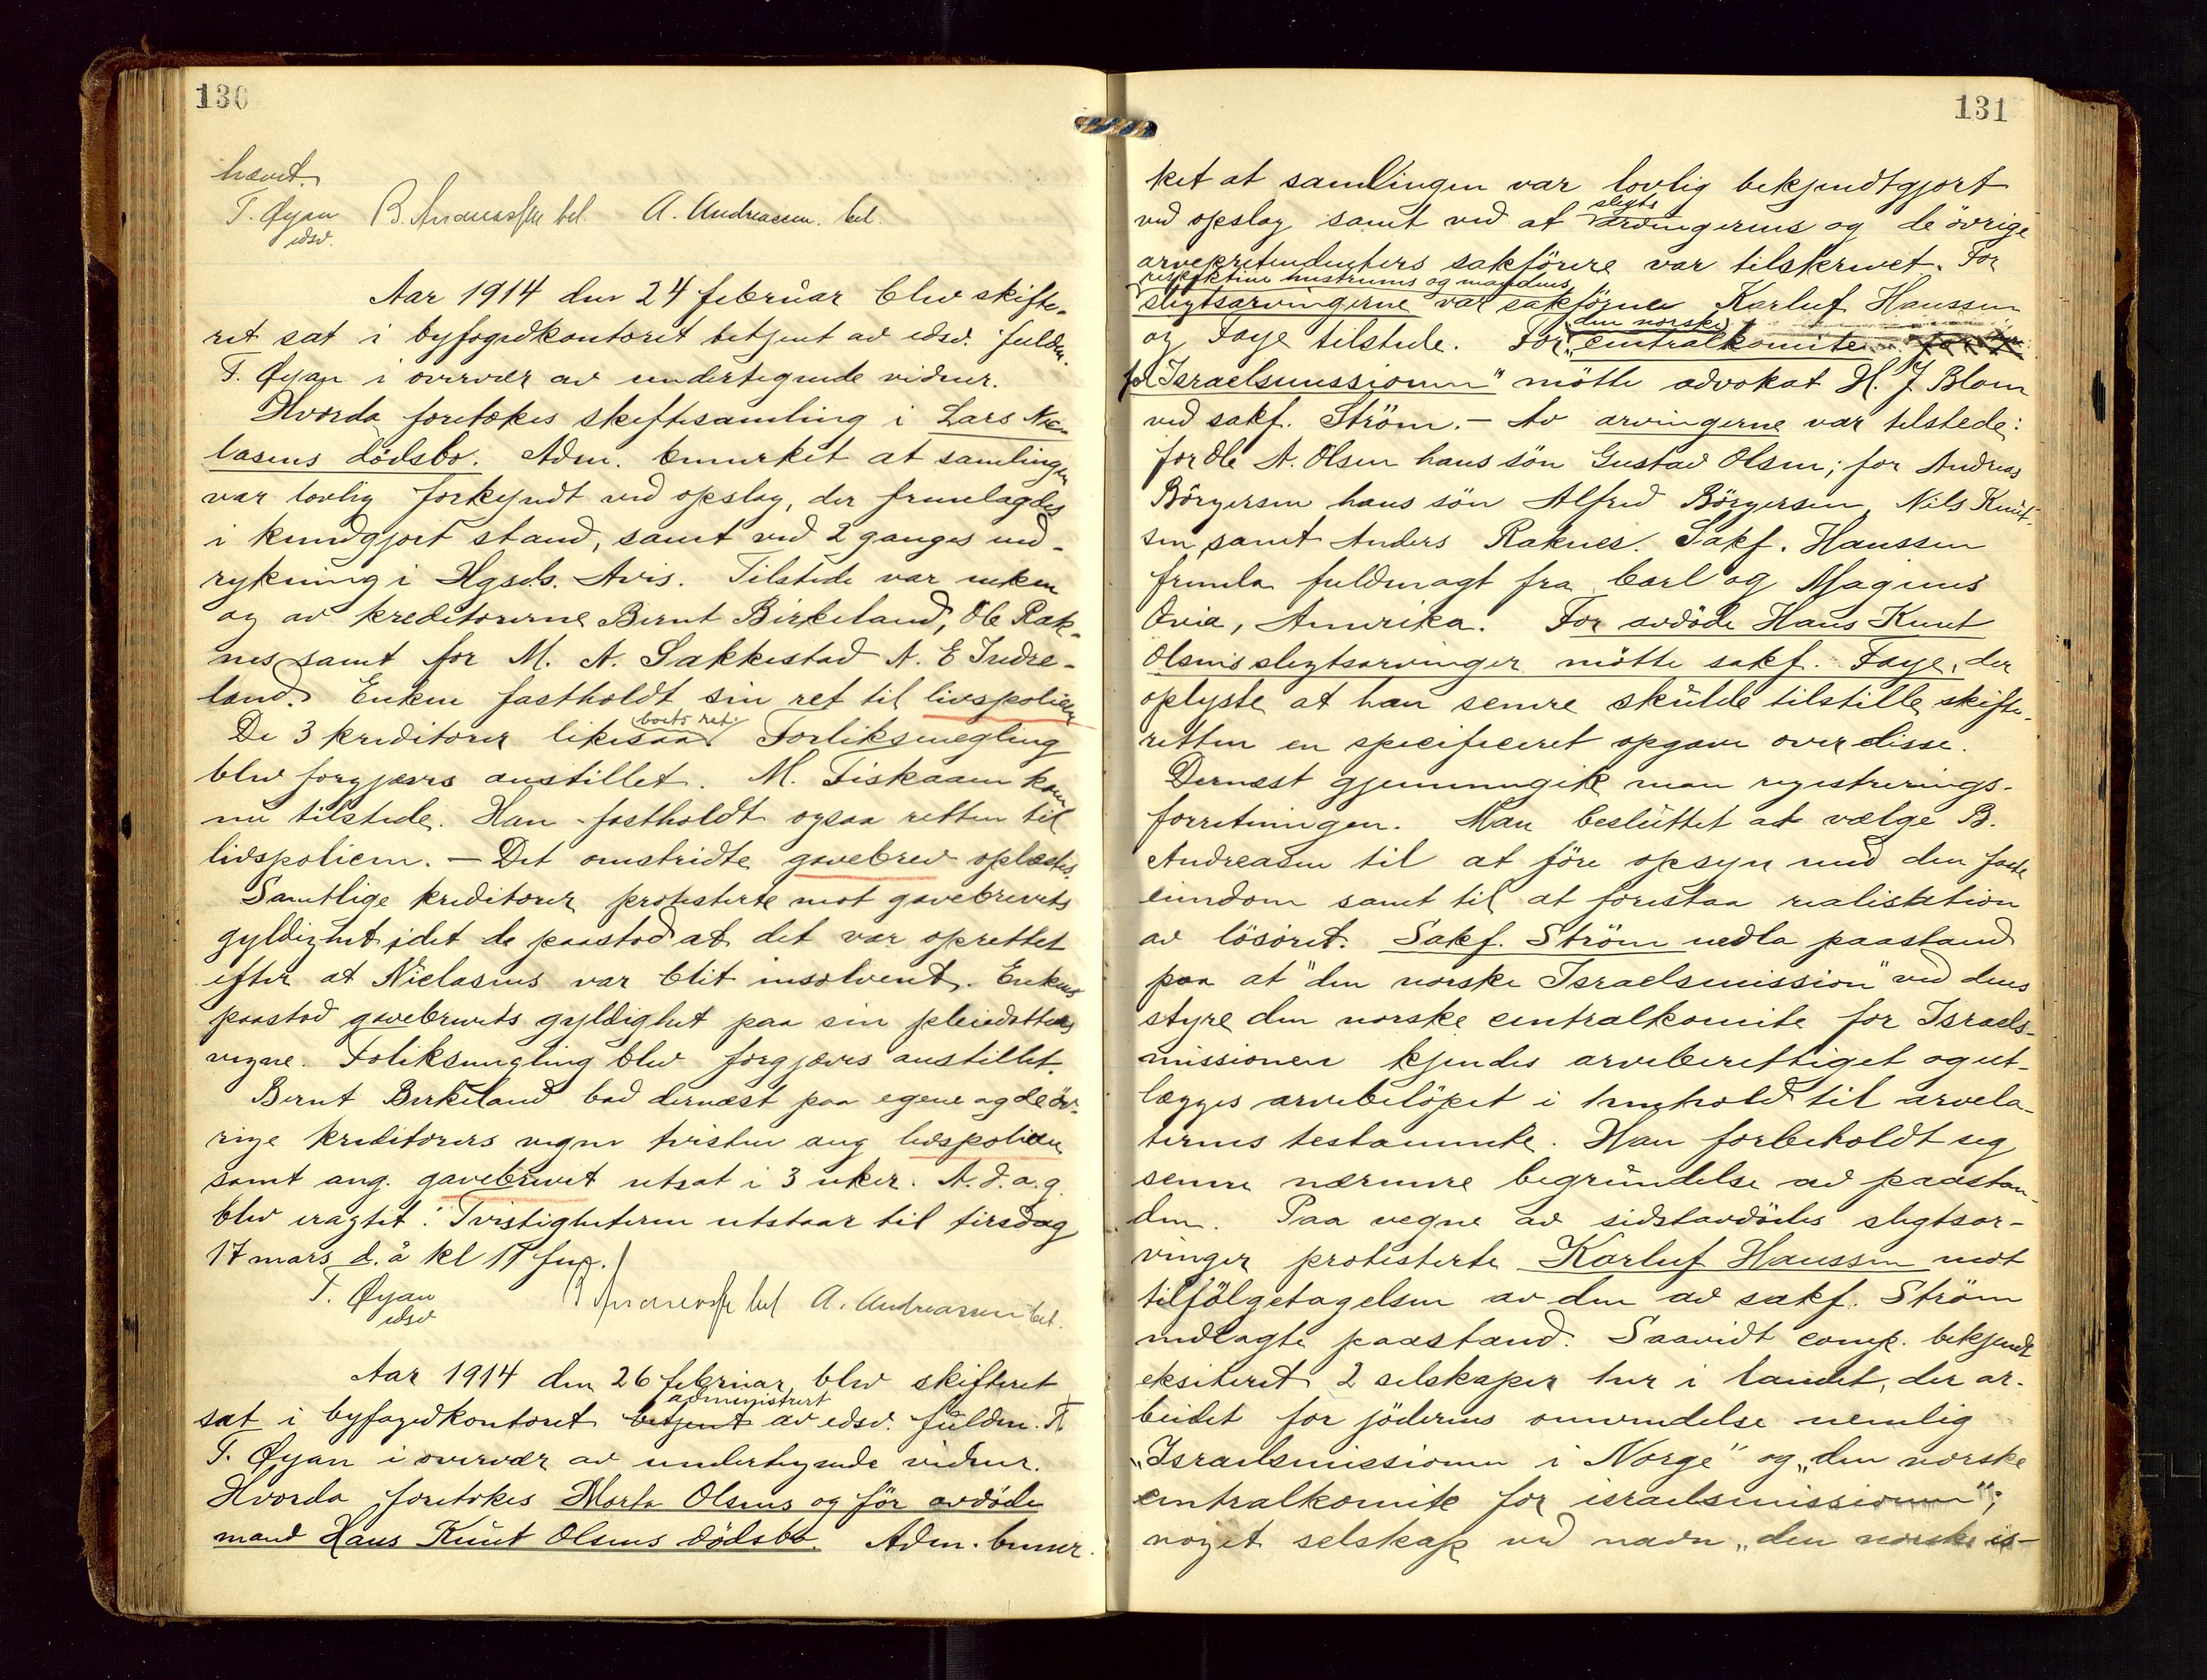 130
hævet.
T. Øyan B. Andreassen bel. A. Andreassen. bel.
edsv.
Aar 1914 den 24 februar blev skifte-
ret sat i byfogedkontoret betjent av edsv. fuldm.
T. Øyan i overvær av undertegnede vidner.
Hvorda foretokes skiftesamling i Lars Nic-
lasens dödsbo. Adm. bemerket at samlingen
var lovlig forkyndt ved opslag, der fremlagdes
i kundgjort stand, samt ved 2 ganges ind-
rykning i Hgsds. Avis. Tilstede var enken
og av kreditorerne Bernt Birkeland, Ole Rak-
nes samt for M. A. Sakkestad A. E Indre-
land. Enken fastholdt sin ret til livspolicen
boets ret.
De 3 kreditorer likesaa Forliksmegling
blev forgjæves anstillet. M. Fiskaaen kom
nu tilstede. Han fastholdt ogsaa retten til
livspolicen. — Det omstridte gavebrev oplæstes.
Samtlige kreditorer protesterte mot gavebrevets
gyldighet idet de paastod at det var oprettet
efter at Niclasens var blit insolvent. Enken
paastod gavebrevets gyldighet paa sin pleiedatters
vegne. Foliksmegling blev forgjæves anstillet.
Bernt Birkeland bad dernæst paa egne og de öv-
rige kreditorers vegne tvisten ang livspolicen
samt ang. gavebrevet utsat i 3 uker. A. d. a. g.
blev eragtet: Tvistigheterne utstaar til tirsdag
17 mars d. å kl 11 fm.
T. Øyan B Andreassen bel A. Andreassen bel.
edsv
Aar 1914 den 26 februar blev skifteret
administrert
sat i byfogedkontoret betjent av edsv. fuldm. T.
T. Øyan i overvær av undertegnede vidner.
Hvorda foretokes Marta Olsens og för avdöde
mand Hans Knut Olsens dödsbo. Adm. bemer-
131
ket at samlingen var lovlig bekjendtgjort
slegts
ved opslag samt ved at arvingernes og de övrige
arvepretendenters sakförere var tilskrevet. For
respektive hustruens og mandens
slegtsarvingerne var sakförerne Karluf Hanssen
den norske
og Faye tilstede. For „centralkomite
for Israelsmissionen" mötte advokat H. J Blom
ved sakf. Ström. — Av arvingerne var tilstede:
for Ole A. Olsen hans sön Gustav Olsen; for Andreas
Börgersen hans sön Alfred Börgersen, Nils Knut-
sen samt Anders Raknes. Sakf. Hanssen
fremla fuldmagt fra Carl og Magnus
Ovia, Amerika. For avdöde Hans Knut
Olsens slegtsarvinger mötte sakf. Faye, der
oplyste at han senere skulde tilstille skifte-
retten en specificeret opgave over disse.
Dernæst gjennemgik man registrerings-
forretningen. Man besluttet at vælge B.
Andreasen til at före opsyn med den faste
eiendom samt til at forestaa realisation
av lösöret. Sakf. Ström nedla paastand
paa at "den norske Israelsmission" ved dens
styre den norske centralkomite for Israels-
missionen kjendes arveberettiget og ut-
lægges arvebelöpet i henhold til arvela-
terens testamente. Han forbeholdt seg
senere nærmere begrundelse av paastan-
den. Paa vegne av sidstavdödes slegtsar-
vinger protesterte Karluf Hanssen mot
tilfölgetagelsen av den av sakf. Ström
nedlagte paastand. Saavidt comp. bekjendt
eksisteret 2 selskaper her i landet, der ar-
beidet for jödernes omvendelse nemlig
„Israelsmissionen i Norge" og „den norske
centralkomite for israelsmissionen";
noget selskap ved navn „den norske is-